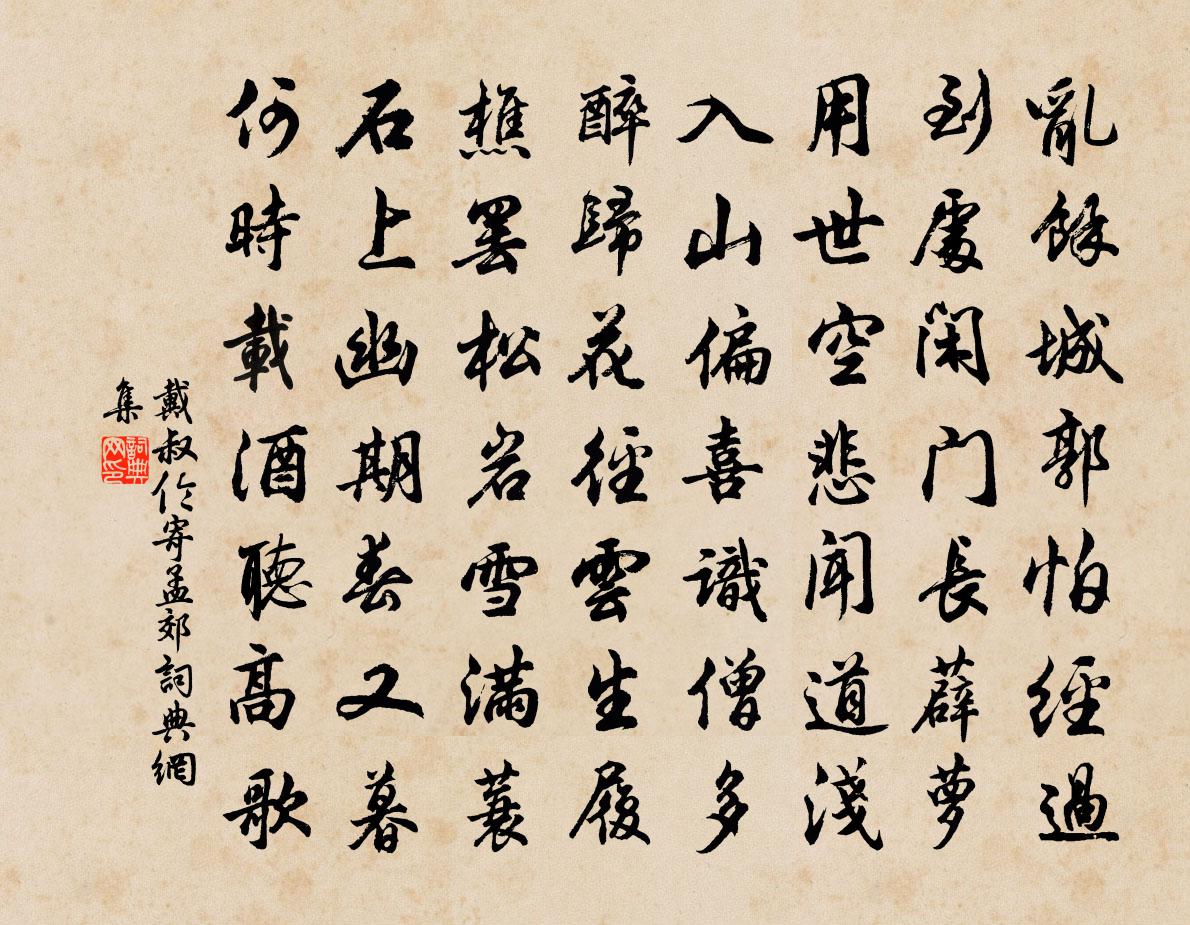 亂餘城郭怕經過
到處閑門長薜夢
用世空悲聞道淺
入山偏喜識僧多
醉歸花徑雲生履
樵罷松岩雪滿蓑
石上幽期春又暮
何時載酒聽高歌
戴叔伦寄孟郊詞典網
集
詞典
网印